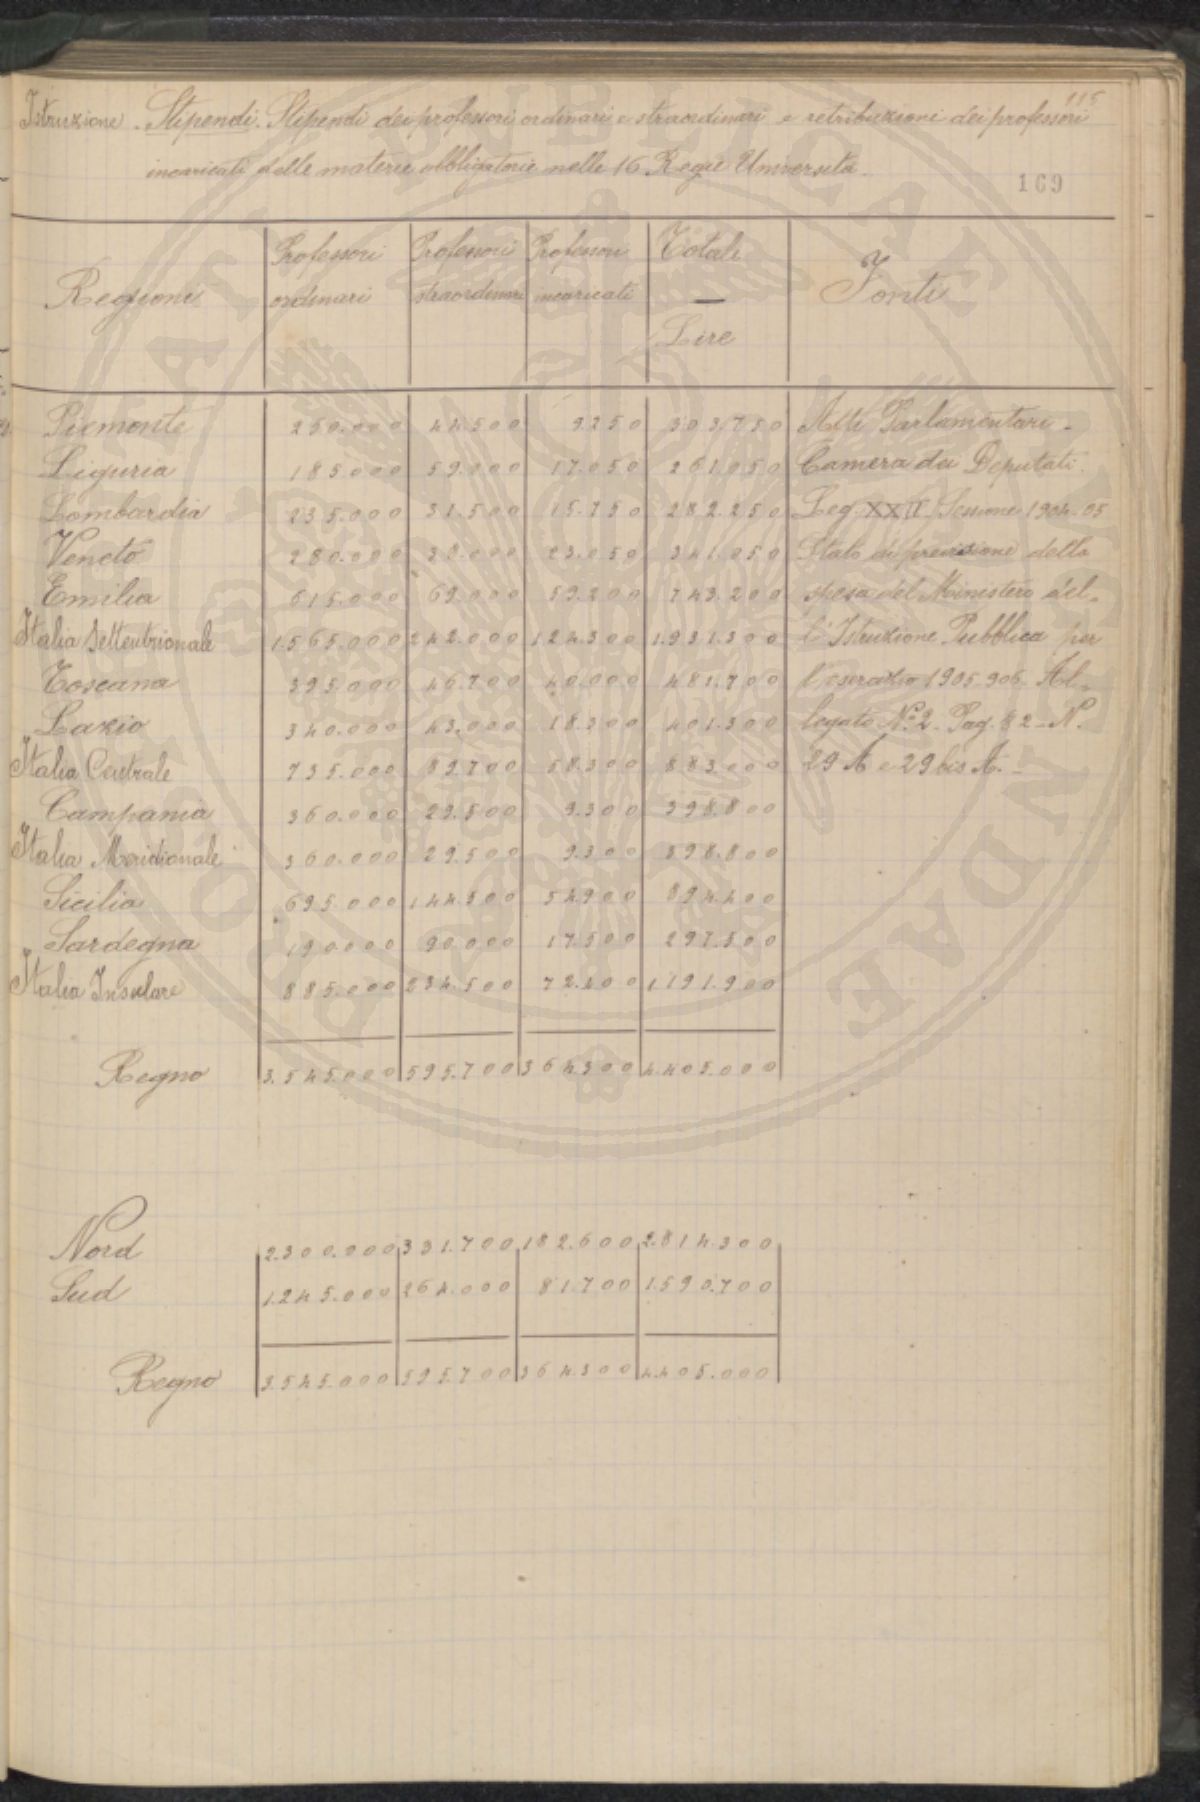 115
Istruzione. Stipendi. Stipendi dei professori ordinari e straordinari e retribuzioni dei professori
incaricati delle materie obbligatorie nelle 16 Regie Università.
169
Regioni | Professori ordinari | Professori straordinari | Professori incaricati | Totale — Lire | Fonti
Piemonte 250.000 44.500 9.250 303.750 Atti Parlamentari -
Liguria 185.000 59.000 17.050 261.050 Camera dei Deputati.
Lombardia 235.000 31.500 15.750 282.250 Leg. XXII Sessione 1904-05
Veneto 280.000 38.000 23.050 341.050 Stato di previsione della
Emilia 615.000 69.000 59.200 743.200 spesa del Ministero del-
Italia Settentrionale 1.565.000 242.000 124.300 1.931.300 l'Istruzione Pubblica per
Toscana 395.000 46.700 40.000 481.700 l'esercizio 1905-906. Al-
Lazio 340.000 43.000 18.300 401.300 legato N.º 2. Pag. 82 - N.
Italia Centrale 735.000 89.700 58.300 883.000 29 A e 29 bis A. -
Campania 360.000 29.500 9.300 398.800
Italia Meridionale 360.000 29.500 9.300 398.800
Sicilia 695.000 144.500 54900 894400
Sardegna 190000 90.000 17.500 297.500
Italia Insulare 885.000 234.500 72.400 1.191.900
Regno 3.545.000 595.700 364300 4.405.000
Nord 2.300.000 331.700 182.600 2.814.300
Sud 1.245.000 264.000 81.700 1.590.700
Regno 3.545.000 595.700 364.300 4.405.000